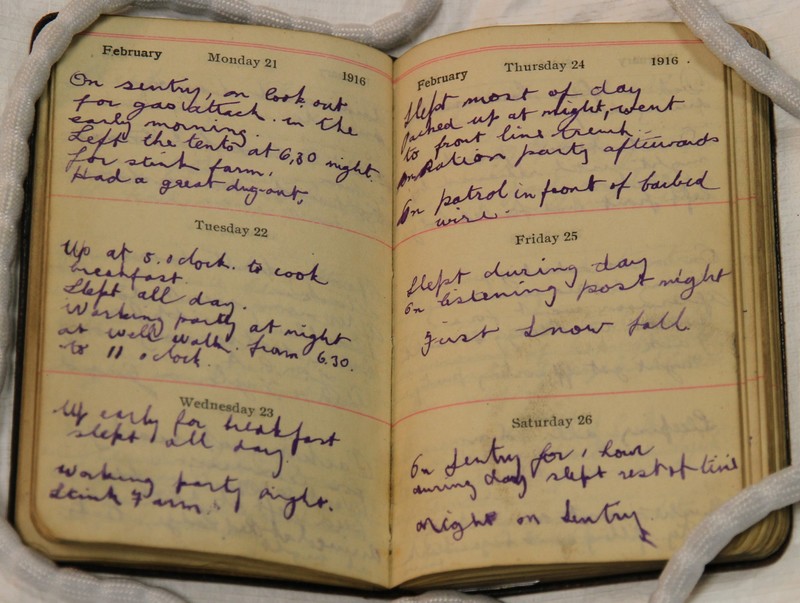 February Monday 21 1916
On sentry, on look out
for gas attack in the
early morning.
Left the tents at 6,30 night.
for stink farm.
Had a great dug-out,
Tuesday 22
Up at 5.oclock. to cook
breakfast.
Slept all day.
Working party at night
at Well Walk. from 6.30.
to 11 oclock.
Wednesday 23
Up early for breakfast
slept all day.
Working party night.
Stink Farm.
February Thursday 24 1916.
Slept most of day
packed up at night, went
to front line trench
on Ration party afterwards
On patrol in front of barbed
wire.
Friday 25
Slept during day
on listening post night
First Snow fall.
Saturday 26
On Sentry for 1 hour
during day slept rest of time
night on Sentry